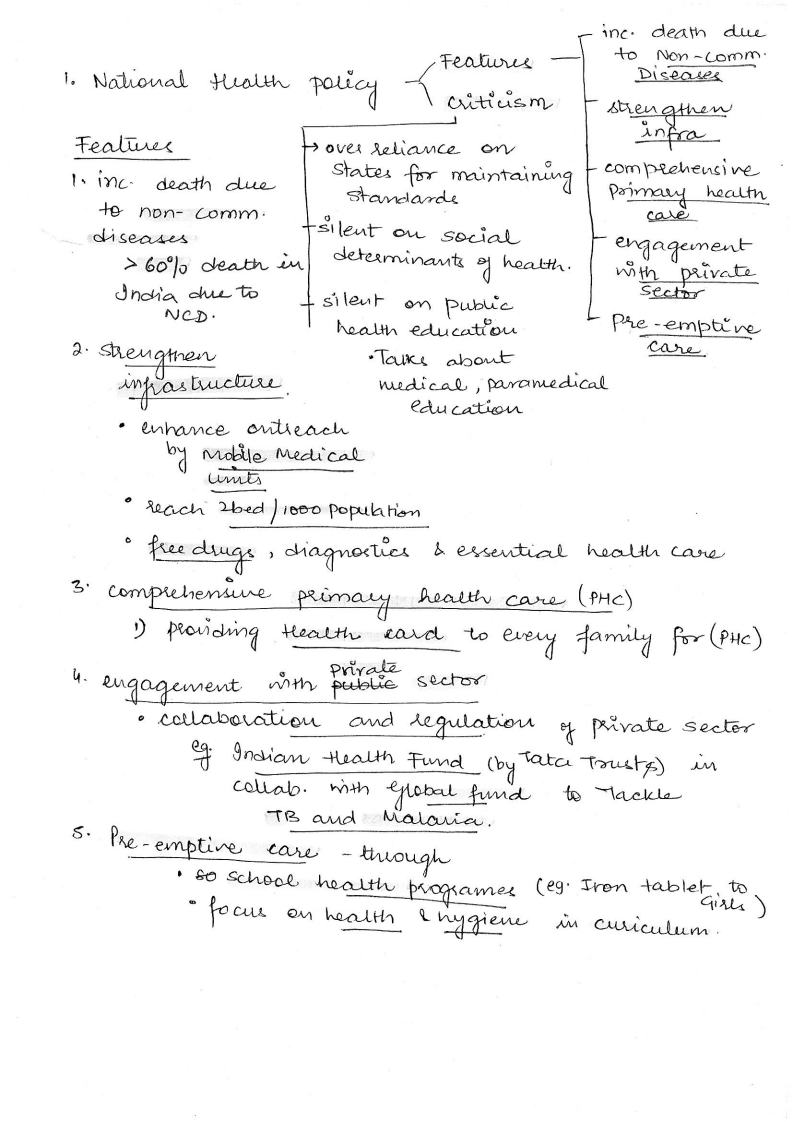 1. National Health policy
Features
criticism
inc. death due
to Non-comm.
Diseases
strengthen
infra
comprehensive
primary health
care
engagement
with private
sector
Pre-emptive
care
over reliance on
States for maintaining
standards
silent on social
determinants of health.
silent on public
health education
• Talks about
medical, paramedical
education
Features
1. inc. death due
to non-comm.
diseases
> 60% death in
India due to
NCD.
2. strengthen
infrastructure.
• enhance outreach
by Mobile Medical
Units
• reach 2bed/1000 population
• free drugs, diagnostics & essential health care
3. comprehensive primary health care (PHC)
1) providing Health card to every family for (PHC)
4. engagement with public private sector
• collaboration and regulation of private sector
eg. Indian Health Fund (by Tata Trusts) in
collab. with Global fund to Tackle
TB and Malaria.
5. Pre-emptive care - through
• so school health programes (eg. Iron tablet to Girls)
• focus on health & hygiene in curiculum.